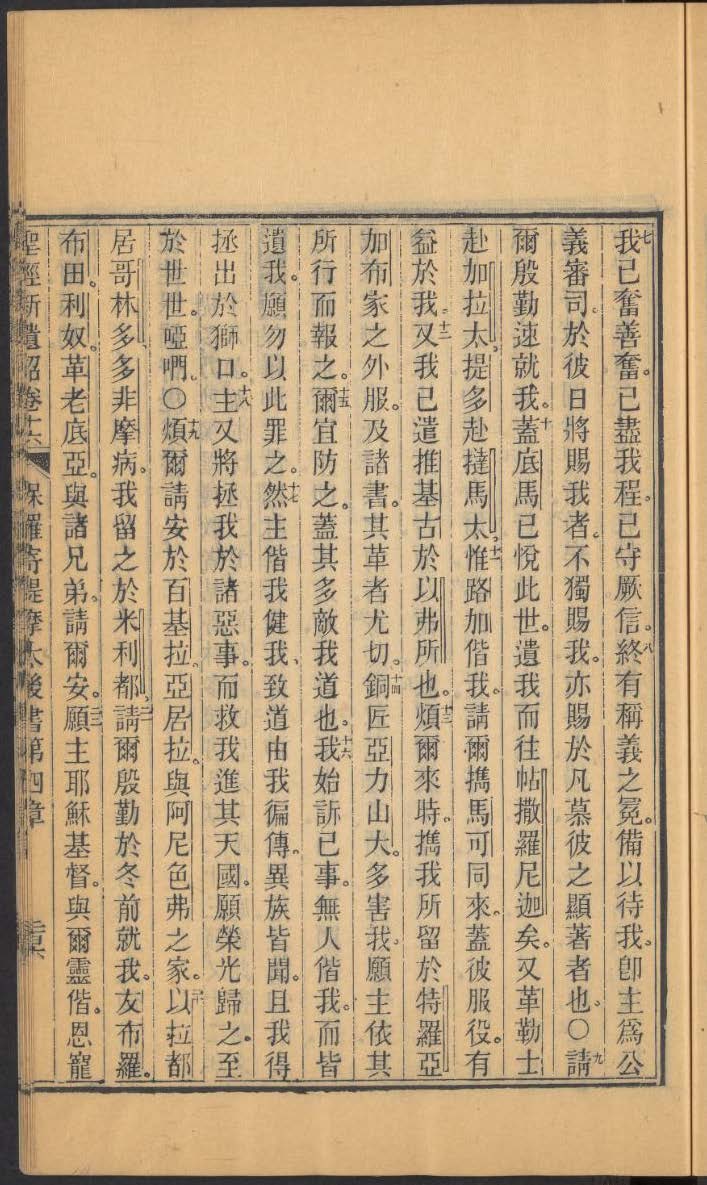 七我已奮善奮。已盡我程。已守厥信。八終有稱義之冕。備以待我。卽主爲公
義審司。於彼日將賜我者。不獨賜我。亦賜於凡慕彼之顯著者也。〇九請
爾殷勤速就我。十蓋底馬已悅此世。遺我而往帖撒羅尼迦矣。又革勒士
赴加拉太。提多赴撻馬太。十一惟路加偕我。請爾攜馬可同來。蓋彼服役。有
益於我。十二又我已遣推基古於以弗所也。十三煩爾來時。攜我所留於特羅亞
加布家之外服。及諸書。其革者尤切。十四銅匠亞力山大。多害我。願主依其
所行而報之。十五爾宜防之。蓋其多敵我道也。十六我始訴已事。無人偕我。而皆
遺我。願勿以此罪之。十七然主偕我健我、致道由我徧傳。異族皆聞。且我得
拯出於獅口。十八主又將拯我於諸惡事。而救我進其天國。願榮光歸之。至
於世世。啞們。〇十九煩爾請安於百基拉。亞居拉。與阿尼色弗之家。二十以拉都
居哥林多。多非摩病。我留之於米利都。二一請爾殷勤於冬前就我。友布羅。
布田利奴。革老底亞。與諸兄弟。請爾安。二二願主耶穌基督。與爾靈偕。恩寵
聖經新遺詔卷十六 保羅寄提摩太後書第四章